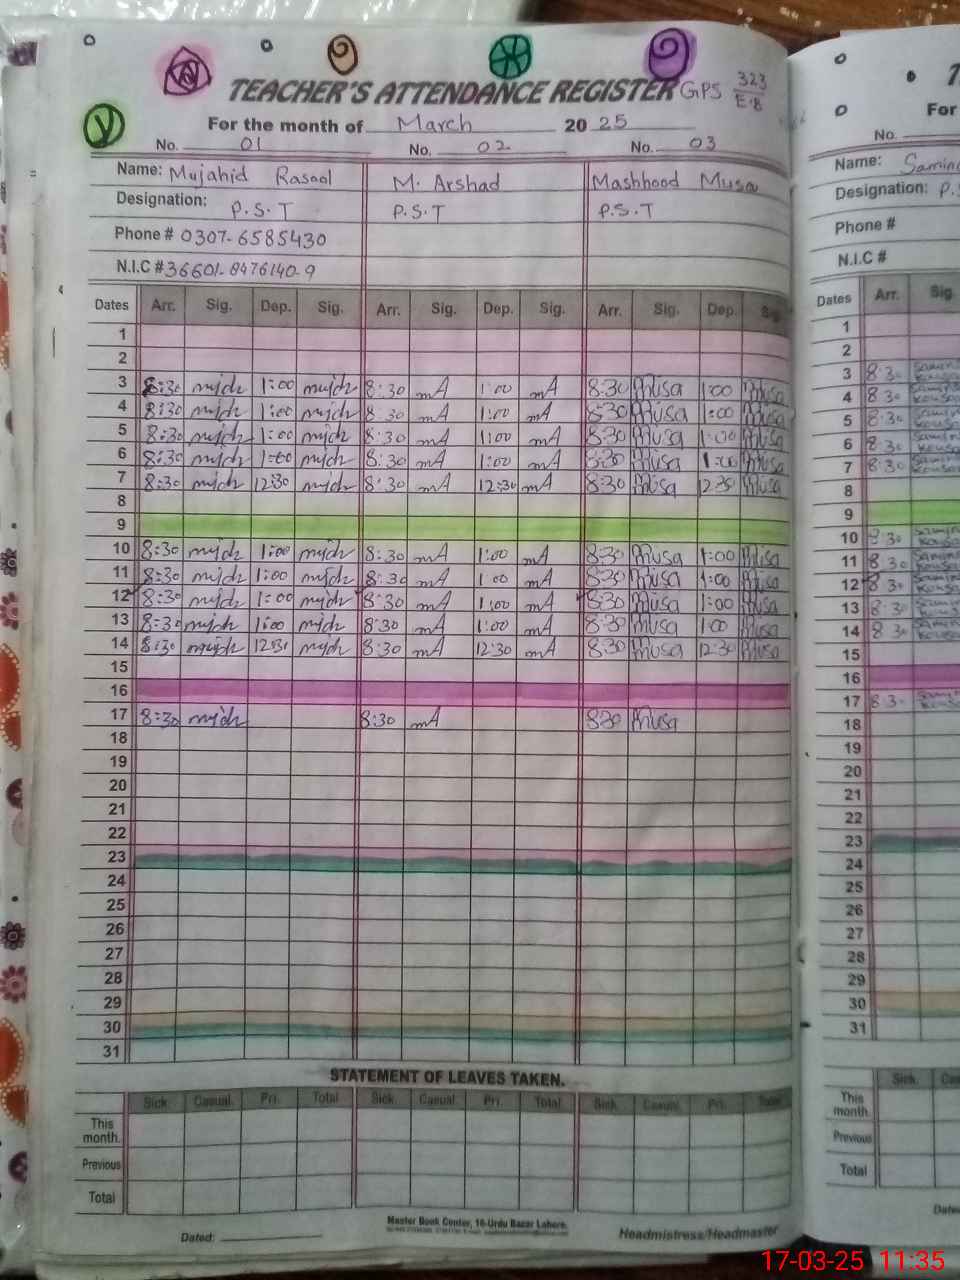 TEACHER'S ATTENDANCE REGISTER GPS 323
E.B
For the month of March 20 25
No. 01 No. 02 No. 03
Name: Mujahid Rasool M. Arshad Mashhood Musa
Designation: P.S.T P.S.T P.S.T
Phone # 0307-6585430
N.I.C # 36601-8476140-9
Dates Arr. Sig. Dep. Sig. Arr. Sig. Dep. Sig. Arr. Sig. Dep. Sig.
1
2
3 8:30 mjch 1:00 mjch 8:30 mA 1:00 mA 8:30 Musa 1:00 Musa
4 8:30 mjch 1:00 mjch 8:30 mA 1:00 mA 8:30 Musa 1:00 Musa
5 8:30 mjch 1:00 mjch 8:30 mA 1:00 mA 8:30 Musa 1:00 Musa
6 8:30 mjch 1:00 mjch 8:30 mA 1:00 mA 8:30 Musa 1:00 Musa
7 8:30 mjch 12:30 mjch 8:30 mA 12:30 mA 8:30 Musa 12:30 Musa
8
9
10 8:30 mjch 1:00 mjch 8:30 mA 1:00 mA 8:30 Musa 1:00 Musa
11 8:30 mjch 1:00 mjch 8:30 mA 1:00 mA 8:30 Musa 1:00 Musa
12 8:30 mjch 1:00 mjch 8:30 mA 1:00 mA 8:30 Musa 1:00 Musa
13 8:30 mjch 1:00 mjch 8:30 mA 1:00 mA 8:30 Musa 1:00 Musa
14 8:30 mjch 12:30 mjch 8:30 mA 12:30 mA 8:30 Musa 12:30 Musa
15
16
17 8:30 mjch 8:30 mA 8:30 Musa
18
19
20
21
22
23
24
25
26
27
28
29
30
31
STATEMENT OF LEAVES TAKEN.
Sick. Casual. Pri. Total Sick. Casual. Pri. Total Sick. Casual. Pri. Total
This month.
Previous
Total
Master Book Center, 16-Urdu Bazar Lahore.
Dated: Headmistress/Headmaster
For
No.
Name:
Designation: P.S
Phone #
N.I.C #
Dates Arr. Sig.
1
2
3 8:30
4 8:30
5 8:30
6 8:30
7 8:30
8
9
10 8:30
11 8:30
12 8:30
13 8:30
14 8:30
15
16
17 8:30
18
19
20
21
22
23
24
25
26
27
28
29
30
31
Sick.
This month.
Previous
Total
17-03-25 11:35